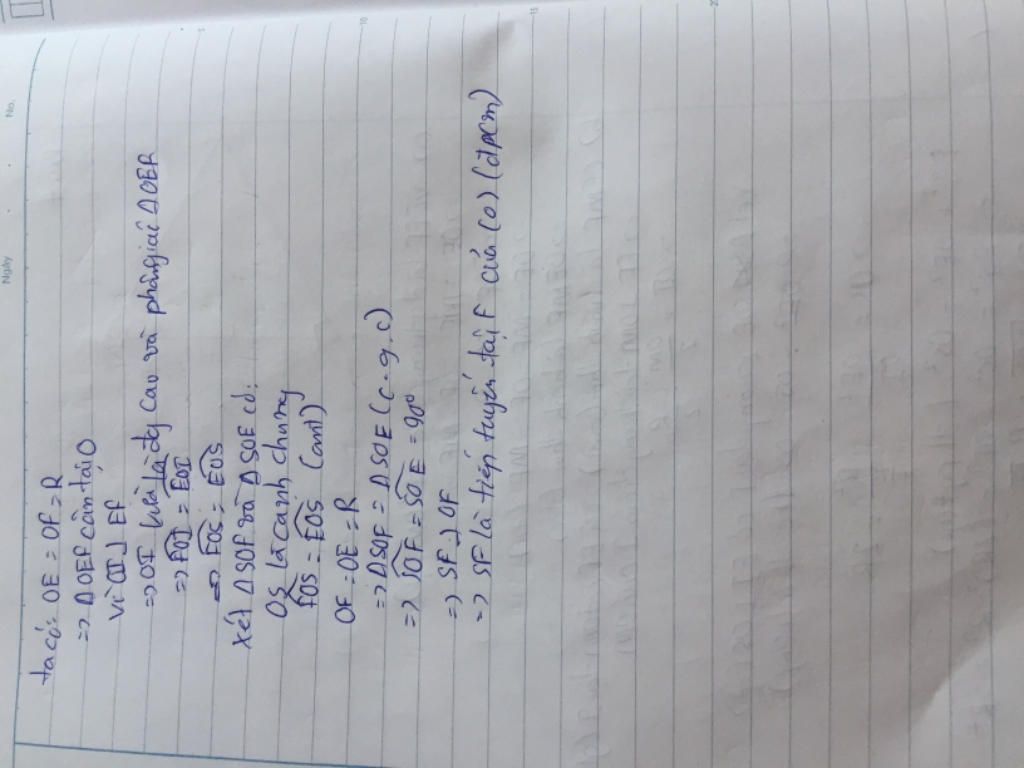 No.
Ngày
5
10
15
20
ta có: OE = OF = R
=> ΔOEF cân tại O
Vì OI ⊥ EF
=> OI vừa là đg cao và phângiác ΔOER
=> FOI = EOI
=> FOS = EOS
Xét ΔSOF và ΔSOE có:
OS là cạnh chung
FOS = EOS (cmt)
OF = OE = R
=> ΔSOF = ΔSOE (c.g.c)
=> SOF = SOE = 90°
=> SF ⊥ OF
=> SF là tiếp tuyến tại F của (O) (đpcm)